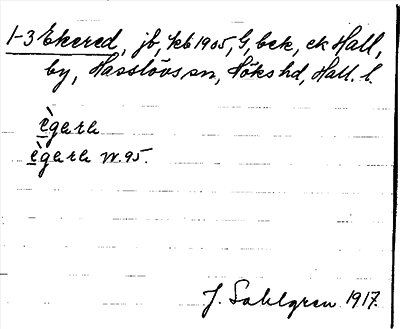 1-3 Ekered, jb, kb 1905, G, bek, ek Hall,
by, Hasslövs sn, Höks hd, Hall. l.
ègara
ègara W. 95.
J. Sahlgren 1917.